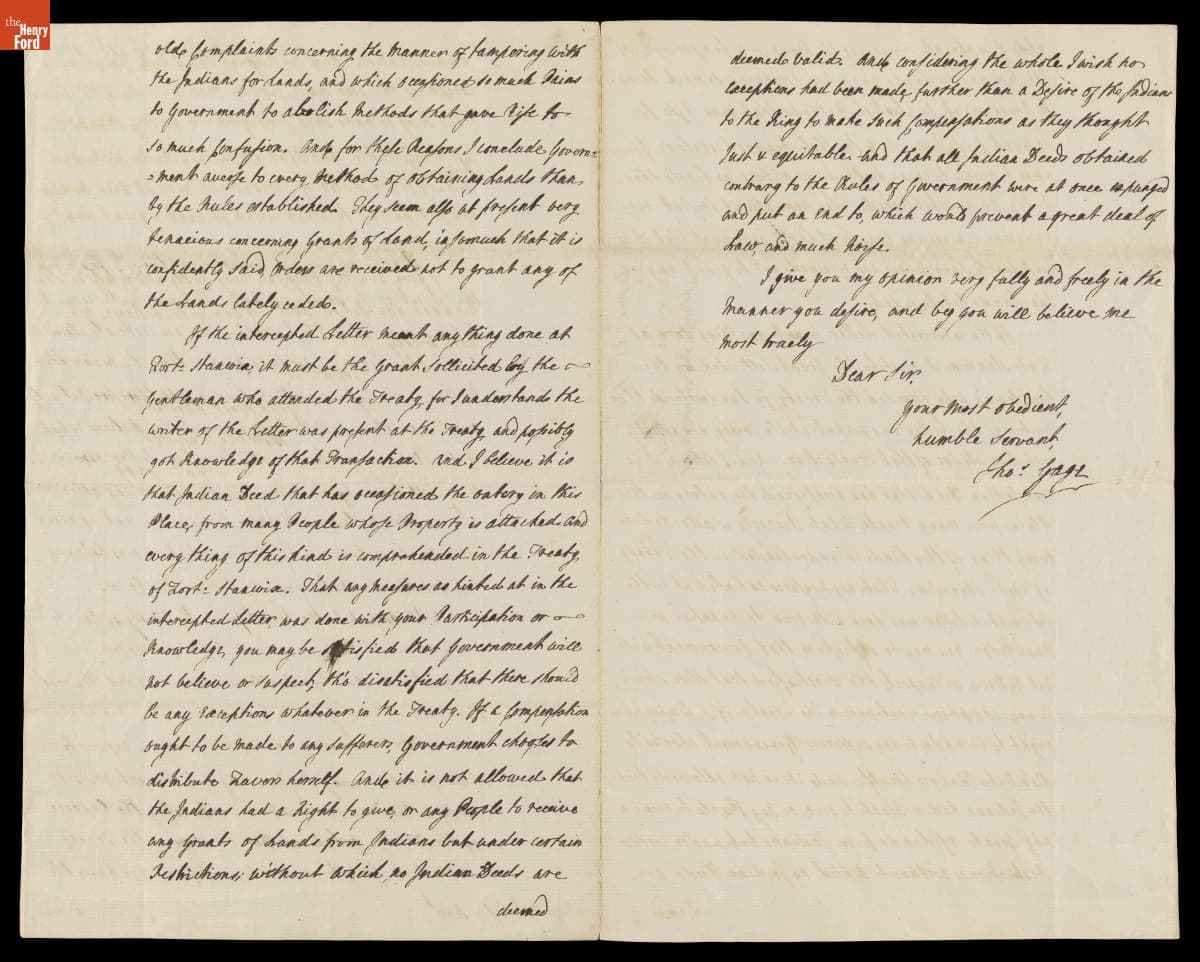 the
Henry
Ford
old Complaints concerning the Manner of tampering with
the Indians for Lands, and which occasioned so much Pains
to Government to abolish Methods that gave Rise to
so much Confusion. And for these Reasons I conclude Govern=
=ment averse to every Method of obtaining Lands than
by the Rules established. They seem also at present very
tenacious concerning Grants of Land, insomuch that it is
confidently said, Orders are received not to grant any of
the Lands lately ceded.
If the intercepted Letter meant any thing done at
Fort: Stanwix, it must be the Grant sollicited by the
Gentleman who attended the Treaty, for I understand the
writer of the Letter was present at the Treaty, and possibly
got Knowledge of that Transaction. And I believe it is
that Indian Deed that has occasioned the outcry in this
Place, from many People whose Property is attached and
every thing of this Kind is comprehended in the Treaty
of Fort: Stanwix. That any measures as hinted at in the
intercepted Letter, was done with your Participation or
Knowledge, you may be satisfied that Government will
not believe or suspect, tho' disatisfied that there should
be any Exceptions whatever in the Treaty. If a Compensation
ought to be made to any sufferers, Government chooses to
distribute Favors herself. And it is not allowed that
the Indians had a Right to give, or any People to receive
any Grants of Lands from Indians but under certain
Restrictions; without which no Indian Deeds are
deemed
deemed valid. And considering the whole I wish no
Exceptions had been made, further than a Desire of the Indians
to the King to make such Compensations as they thought
Just & equitable and that all Indian Deeds obtained
contrary to the Rules of Government were at once expunged
and put an End to, which would prevent a great deal of
Law, and much Noise.
I give you my opinion very fully and freely in the
Manner you desire, and beg you will believe me
most truely
Dear Sir,
your most obedient,
humble Servant,
Tho.s Gage